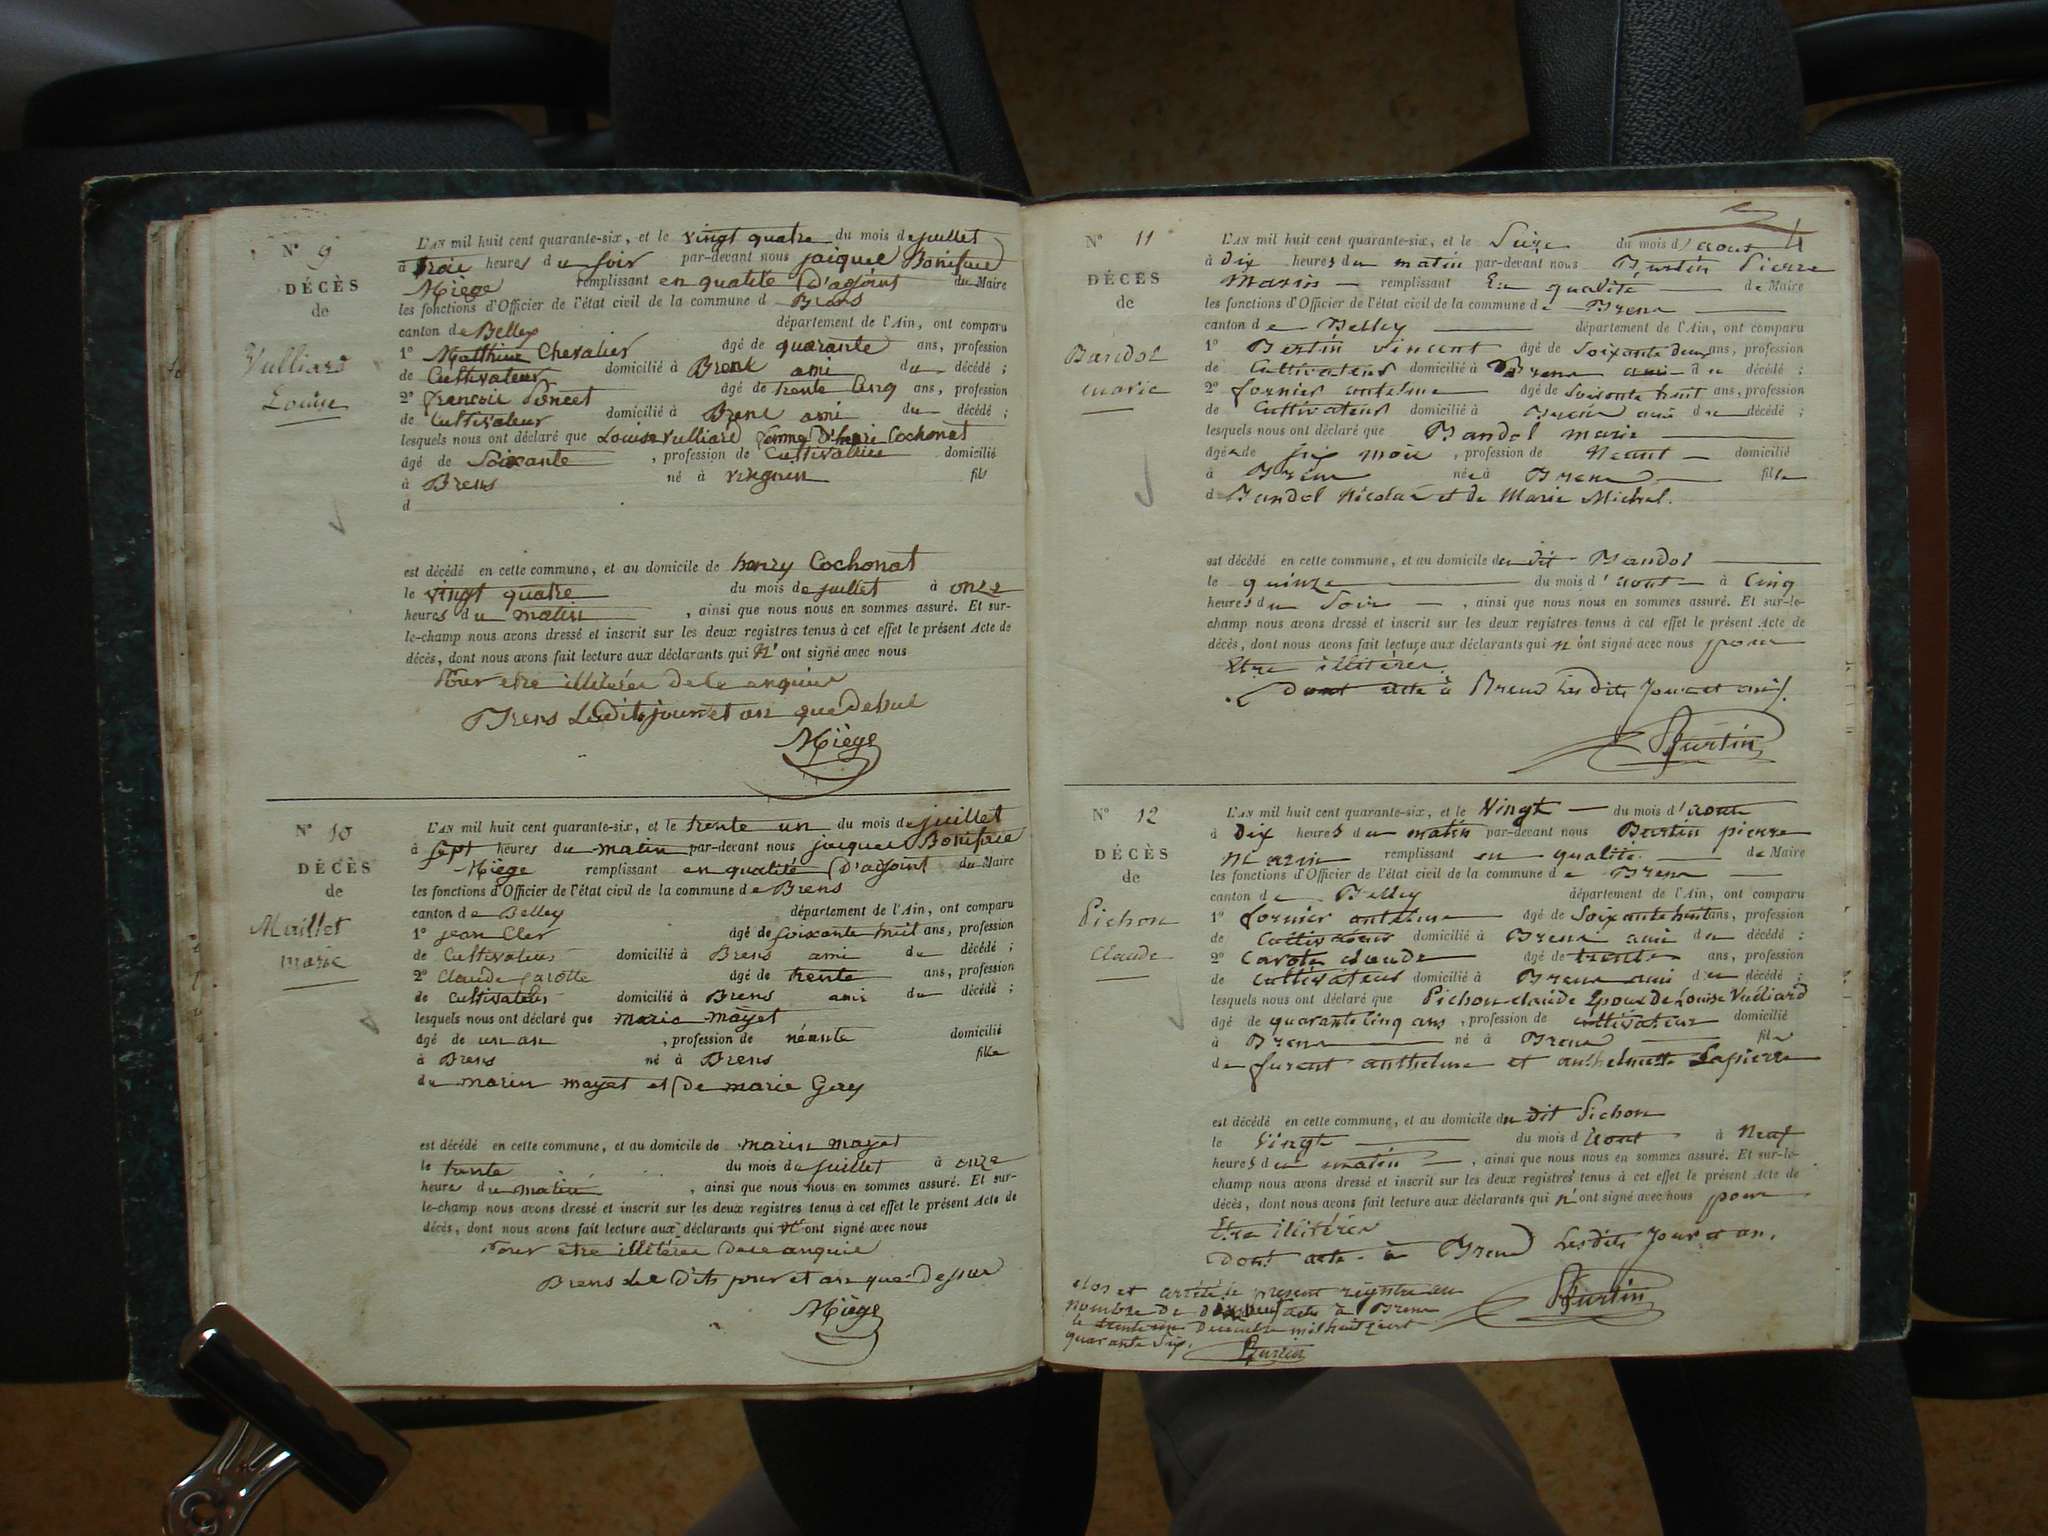 N° 9
DÉCÈS
de
Vulliard
Louise
L'AN mil huit cent quarante-six, et le vingt quatre du mois de juillet
à trois heures du soir par-devant nous jacques Boniface
Miège remplissant en qualité d'adjoint du Maire
les fonctions d'Officier de l'état civil de la commune d Brens
canton de Belley département de l'Ain, ont comparu
1° Matthieu Chevalier âgé de quarante ans, profession
de Cultivateur domicilié à Brens ami du décédé ;
2° francois Poncet âgé de trente Cinq ans, profession
de Cultivateur domicilié à Brens ami du décédé ;
lesquels nous ont déclaré que Louise Vulliard femme D'henri Cochonat
âgé de Soixante , profession de Cultivatrice domicilié
à Brens né à virignin fils
d
est décédé en cette commune, et au domicile de henry Cochonat
le vingt quatre du mois de juillet à onze
heures du matin , ainsi que nous nous en sommes assuré. Et sur-
le-champ nous avons dressé et inscrit sur les deux registres tenus à cet effet le présent Acte de
décès, dont nous avons fait lecture aux déclarants qui n' ont signé avec nous
Pour etre illiterés de ce enquis
Brens Lesdits jour et an que Dessus
Miège
N° 10
DÉCÈS
de
Maillet
marie
L'AN mil huit cent quarante-six, et le trente un du mois de juillet
à sept heures du matin par-devant nous jacques Boniface
Miège remplissant en qualité d'adjoint du Maire
les fonctions d'Officier de l'état civil de la commune de Brens
canton de Belley département de l'Ain, ont comparu
1° jean Cler âgé de soixante huit ans, profession
de Cultivateur domicilié à Brens ami du décédé ;
2° Claude Carotte âgé de trente ans, profession
de Cultivateur domicilié à Brens ami du décédé ;
lesquels nous ont déclaré que marie mayet
âgé de un an , profession de néante domicilié
à Brens né à Brens fille
de marin mayet et de marie Gery
est décédé en cette commune, et au domicile de marin mayet
le trente du mois de juillet à onze
heures du matin , ainsi que nous nous en sommes assuré. Et sur-
le-champ nous avons dressé et inscrit sur les deux registres tenus à cet effet le présent Acte de
décès, dont nous avons fait lecture aux déclarants qui n' ont signé avec nous
Pour être illiterés de ce enquis
Brens les Dits jour et an que Dessus
Miège
N° 11
DÉCÈS
de
Bandol
marie
4
L'AN mil huit cent quarante-six, et le Seize du mois d'aout
à Dix heures du matin par-devant nous Burtin Pierre
Marin remplissant En qualité de Maire
les fonctions d'Officier de l'état civil de la commune de Brens
canton de Belley département de l'Ain, ont comparu
1° Bertin vincent âgé de soixante deux ans, profession
de Cultivateur domicilié à Brens ami du décédé ;
2° fornier antelme âgé de soixante huit ans, profession
de Cultivateur domicilié à Brens ami du décédé ;
lesquels nous ont déclaré que Bandol marie
âgée de six mois , profession de Neant domicilié
à Brens née à Brens fille
d Bandol Nicolas et de Marie Michel.
est décédé en cette commune, et au domicile du dit Bandol
le quinze du mois d'aout à Cinq
heures du Soir , ainsi que nous nous en sommes assuré. Et sur-le-
champ nous avons dressé et inscrit sur les deux registres tenus à cet effet le présent Acte de
décès, dont nous avons fait lecture aux déclarants qui n'ont signé avec nous pour
Etre illitérés
Dont acte à Brens Les dits Jour et an
Burtin
N° 12
DÉCÈS
de
Pichon
Claude
L'AN mil huit cent quarante-six, et le Vingt du mois d'aout
à Dix heures du matin par-devant nous Burtin pierre
Marin remplissant en qualité de Maire
les fonctions d'Officier de l'état civil de la commune de Brens
canton de Belley département de l'Ain, ont comparu
1° fornier antelme âgé de Soixante huit ans, profession
de Cultivateur domicilié à Brens ami du décédé ;
2° Carote claude âgé de trente ans, profession
de Cultivateur domicilié à Brens ami du décédé ;
lesquels nous ont déclaré que Pichon claude Epoux De Louise Vulliard
âgé de quarante cinq ans , profession de cultivateur domicilié
à Brens né à Brens fils
de furent anthelme et anthelmette Lapierre
est décédé en cette commune, et au domicile du dit Pichon
le Vingt du mois d'aout à Neuf
heures du matin , ainsi que nous nous en sommes assuré. Et sur-le-
champ nous avons dressé et inscrit sur les deux registres tenus à cet effet le présent Acte de
décès, dont nous avons fait lecture aux déclarants qui n'ont signé avec nous pour
Etre illitérés
Dont acte à Brens Les dits Jour et an.
Burtin
clos et arrêté le present registre au
nombre de Douze actes à Brens
le trente un Decembre mil huit cent
quarante Six.
Burtin